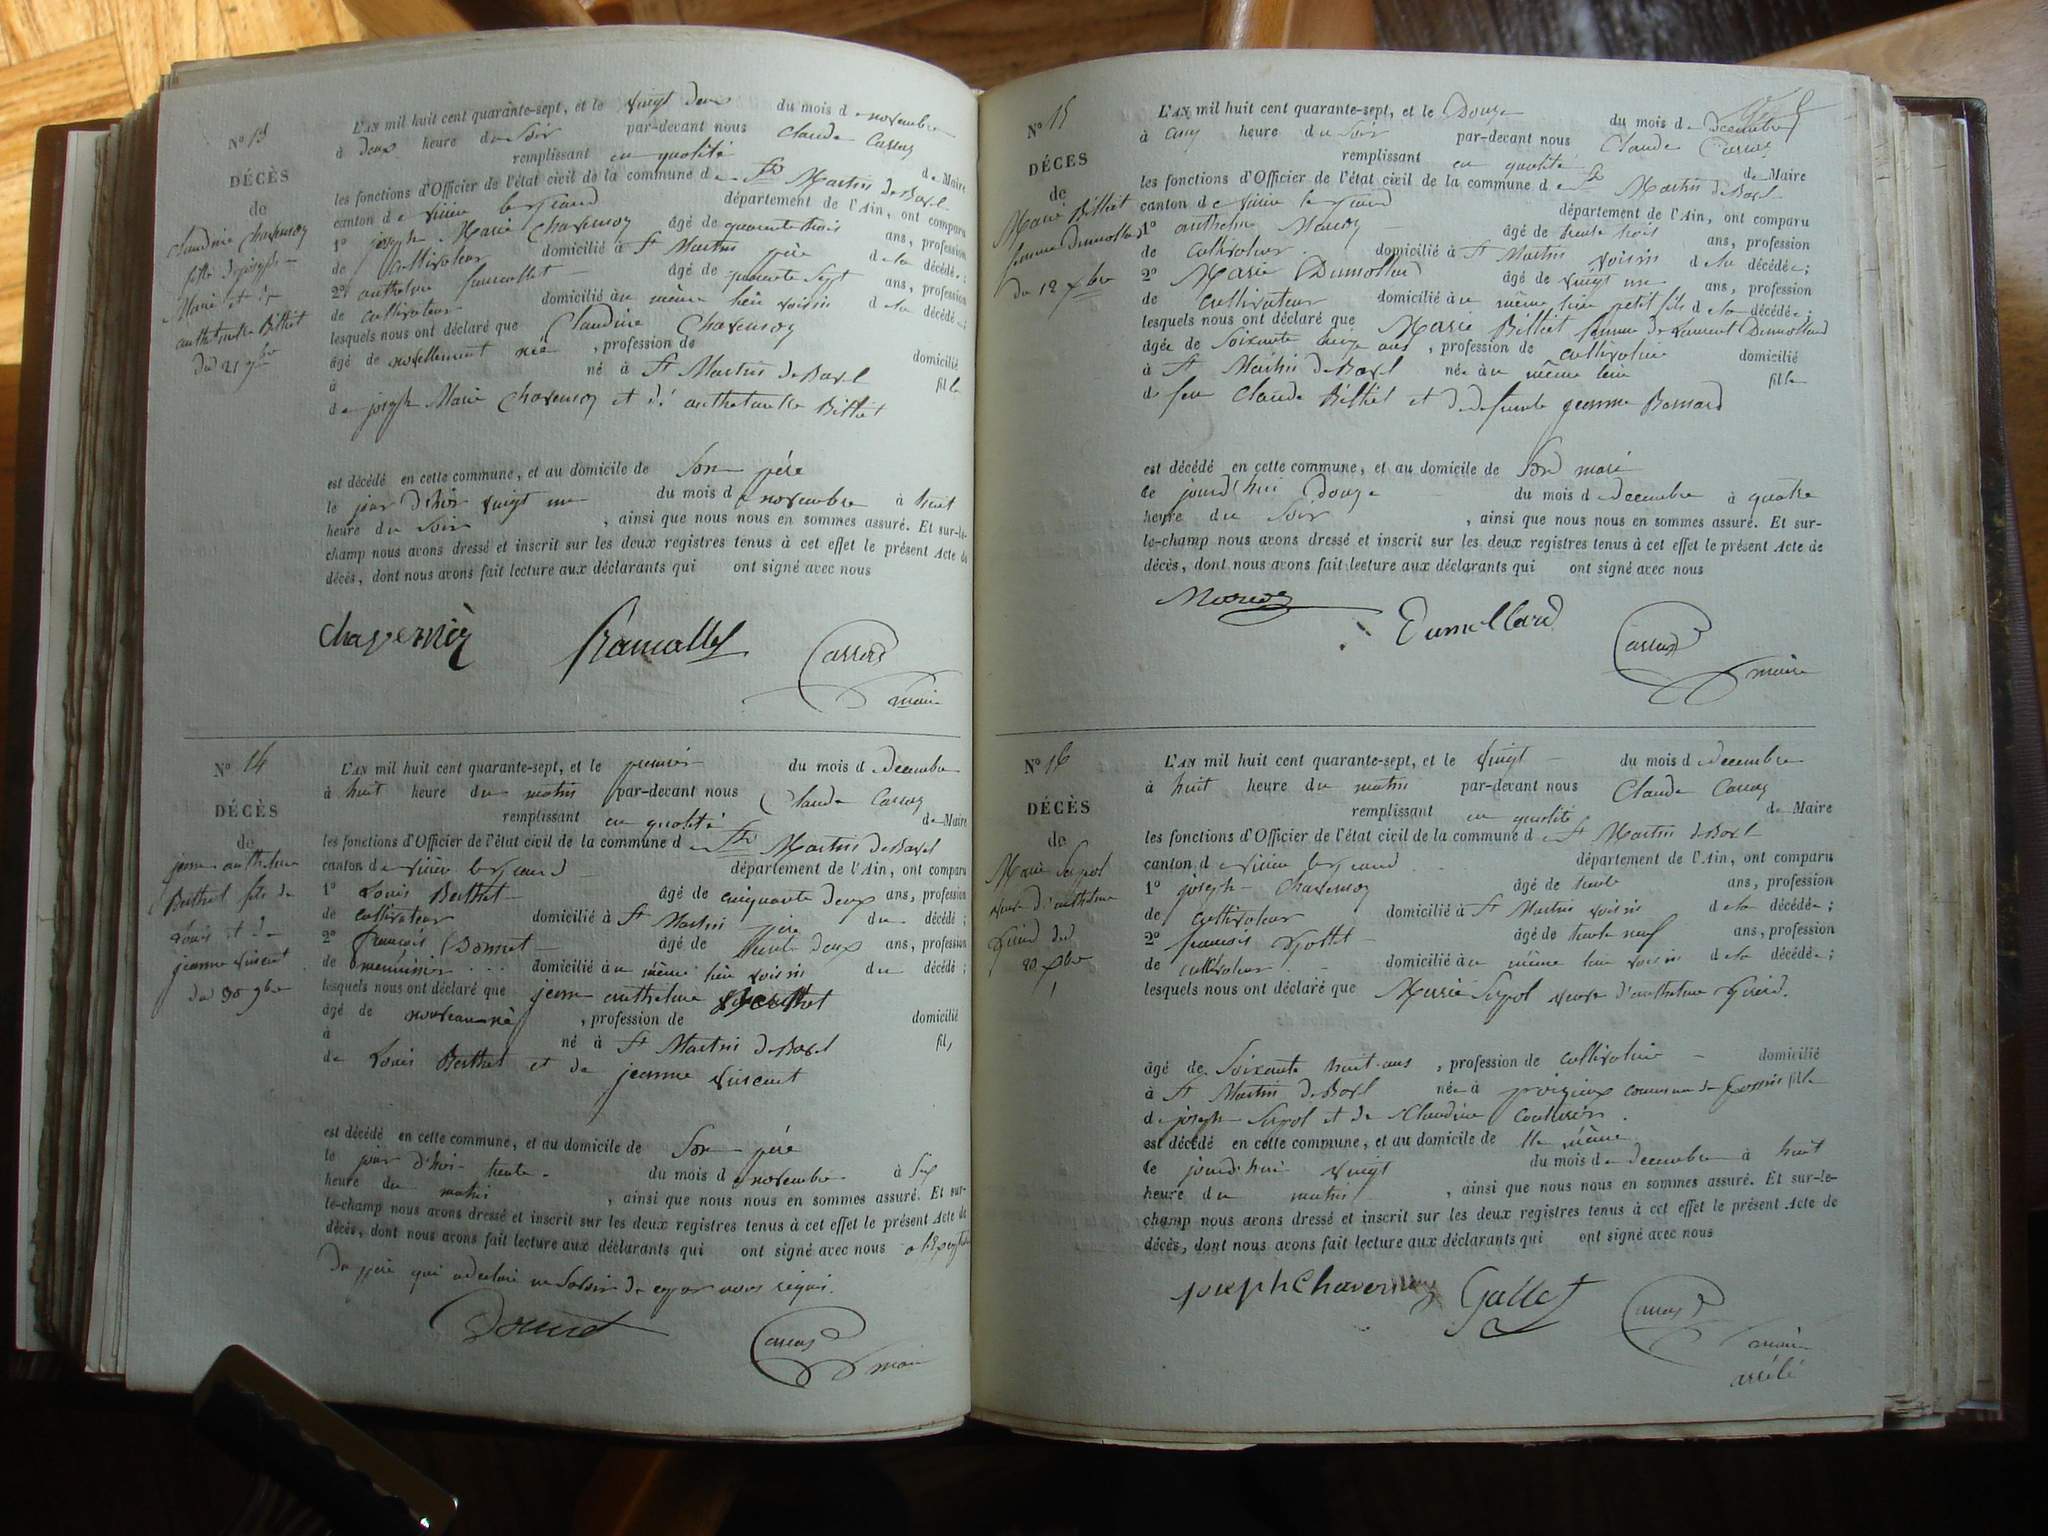 N° 13
DÉCÈS
de
Claudine Chavensoy
fille de joseph
Marie et de
anthelmette Billiet
du 21 9bre
L'AN mil huit cent quarante-sept, et le vingt deux du mois de novembre
à deux heure du soir par-devant nous Claude Carraz
remplissant en qualité de Maire
les fonctions d'Officier de l'état civil de la commune de St Martin de Bavel
canton de virieu le grand département de l'Ain, ont comparu
1° joseph Marie Chavensoy âgé de quarante trois ans, profession
de Cultivateur domicilié à St Martin père de la décédée;
2° anthelme âgé de quarante sept ans, profession
de cultivateur domicilié au même lieu voisin de la décédée;
lesquels nous ont déclaré que Claudine Chavensoy
âgé de nouvellement née, profession de domicilié
à né à St Martin de Bavel fille
de joseph Marie Chavensoy et d'anthelmette Billiet
est décédé en cette commune, et au domicile de Son père
le jour d'hier vingt un du mois de novembre à huit
heure du soir, ainsi que nous nous en sommes assuré. Et sur-le-
champ nous avons dressé et inscrit sur les deux registres tenus à cet effet le présent Acte de
décès, dont nous avons fait lecture aux déclarants qui ont signé avec nous
Carraz
maire
N° 14
DÉCÈS
de
jean anthelme
Berthet fils de
Louis et de
jeanne vincent
du 30 9bre
L'AN mil huit cent quarante-sept, et le premier du mois de decembre
à huit heure du matin par-devant nous Claude Carraz
remplissant en qualité de Maire
les fonctions d'Officier de l'état civil de la commune de St Martin de Bavel
canton de virieu le grand département de l'Ain, ont comparu
1° Louis Berthet âgé de cinquante deux ans, profession
de cultivateur domicilié à St Martin père du décédé;
2° françois Donnet âgé de trente deux ans, profession
de menuisier domicilié au même lieu voisin du décédé;
lesquels nous ont déclaré que jean anthelme Berthet
âgé de nouveau né, profession de domicilié
à né à St Martin de Bavel fils
de Louis Berthet et de jeanne vincent
est décédé en cette commune, et au domicile de Son père
le jour d'hier trente du mois de novembre à Six
heure du matin, ainsi que nous nous en sommes assuré. Et sur-
le-champ nous avons dressé et inscrit sur les deux registres tenus à cet effet le présent Acte de
décès, dont nous avons fait lecture aux déclarants qui ont signé avec nous a l'Exception
du père qui a declaré ne Savoir de ce par nous requis.
Donnet
Carraz
maire
N° 15
DÉCÈS
de
Marie Billiet
femme Dumollard
du 12 xbre
L'AN mil huit cent quarante-sept, et le Douze du mois de Decembre
à cinq heure du soir par-devant nous Claude Carraz
remplissant en qualité de Maire
les fonctions d'Officier de l'état civil de la commune de St Martin de Bavel
canton de virieu le grand département de l'Ain, ont comparu
1° anthelme âgé de trente trois ans, profession
de cultivateur domicilié à St Martin voisin de la décédée;
2° Marie Dumollard âgé de vingt un ans, profession
de cultivateur domicilié au même lieu petit fils de la décédée;
lesquels nous ont déclaré que Marie Billiet femme de Laurent Dumollard
âgée de soixante ans, profession de cultivatrice domicilié
à St Martin de Bavel née au même lieu fille
de feu Claude Billiet et de defunte jeanne Bernard
est décédé en cette commune, et au domicile de Son mari
le jourd'hui Douze du mois de decembre à quatre
heure du Soir, ainsi que nous nous en sommes assuré. Et sur-
le-champ nous avons dressé et inscrit sur les deux registres tenus à cet effet le présent Acte de
décès, dont nous avons fait lecture aux déclarants qui ont signé avec nous
Dumollard
Carraz
maire
N° 16
DÉCÈS
de
Marie Serpol
veuve d'anthelme
du
20 xbre
L'AN mil huit cent quarante-sept, et le vingt du mois de decembre
à huit heure du matin par-devant nous Claude Carraz
remplissant en qualité de Maire
les fonctions d'Officier de l'état civil de la commune de St Martin de Bavel
canton de virieu le grand département de l'Ain, ont comparu
1° joseph Chavensoy âgé de trente ans, profession
de cultivateur domicilié à St Martin voisin de la décédée;
2° françois Gottet âgé de trente neuf ans, profession
de cultivateur domicilié au même lieu voisin de la décédée;
lesquels nous ont déclaré que Marie Serpol veuve d'anthelme
âgé de Soixante huit ans, profession de cultivatrice domicilié
à St Martin de Bavel née à poizieux commune de fille
de joseph Serpol et de Claudine
est décédé en cette commune, et au domicile de Elle même
le jourd'hui vingt du mois de decembre à huit
heure du matin, ainsi que nous nous en sommes assuré. Et sur-le-
champ nous avons dressé et inscrit sur les deux registres tenus à cet effet le présent Acte de
décès, dont nous avons fait lecture aux déclarants qui ont signé avec nous
joseph Gottet
Carraz
maire